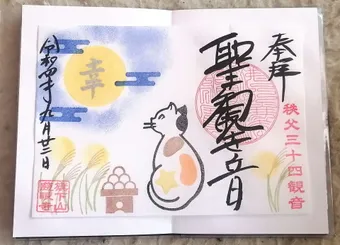 奉拝
秩父三十四観音
聖観世音
幸
令和四年九月廿三日